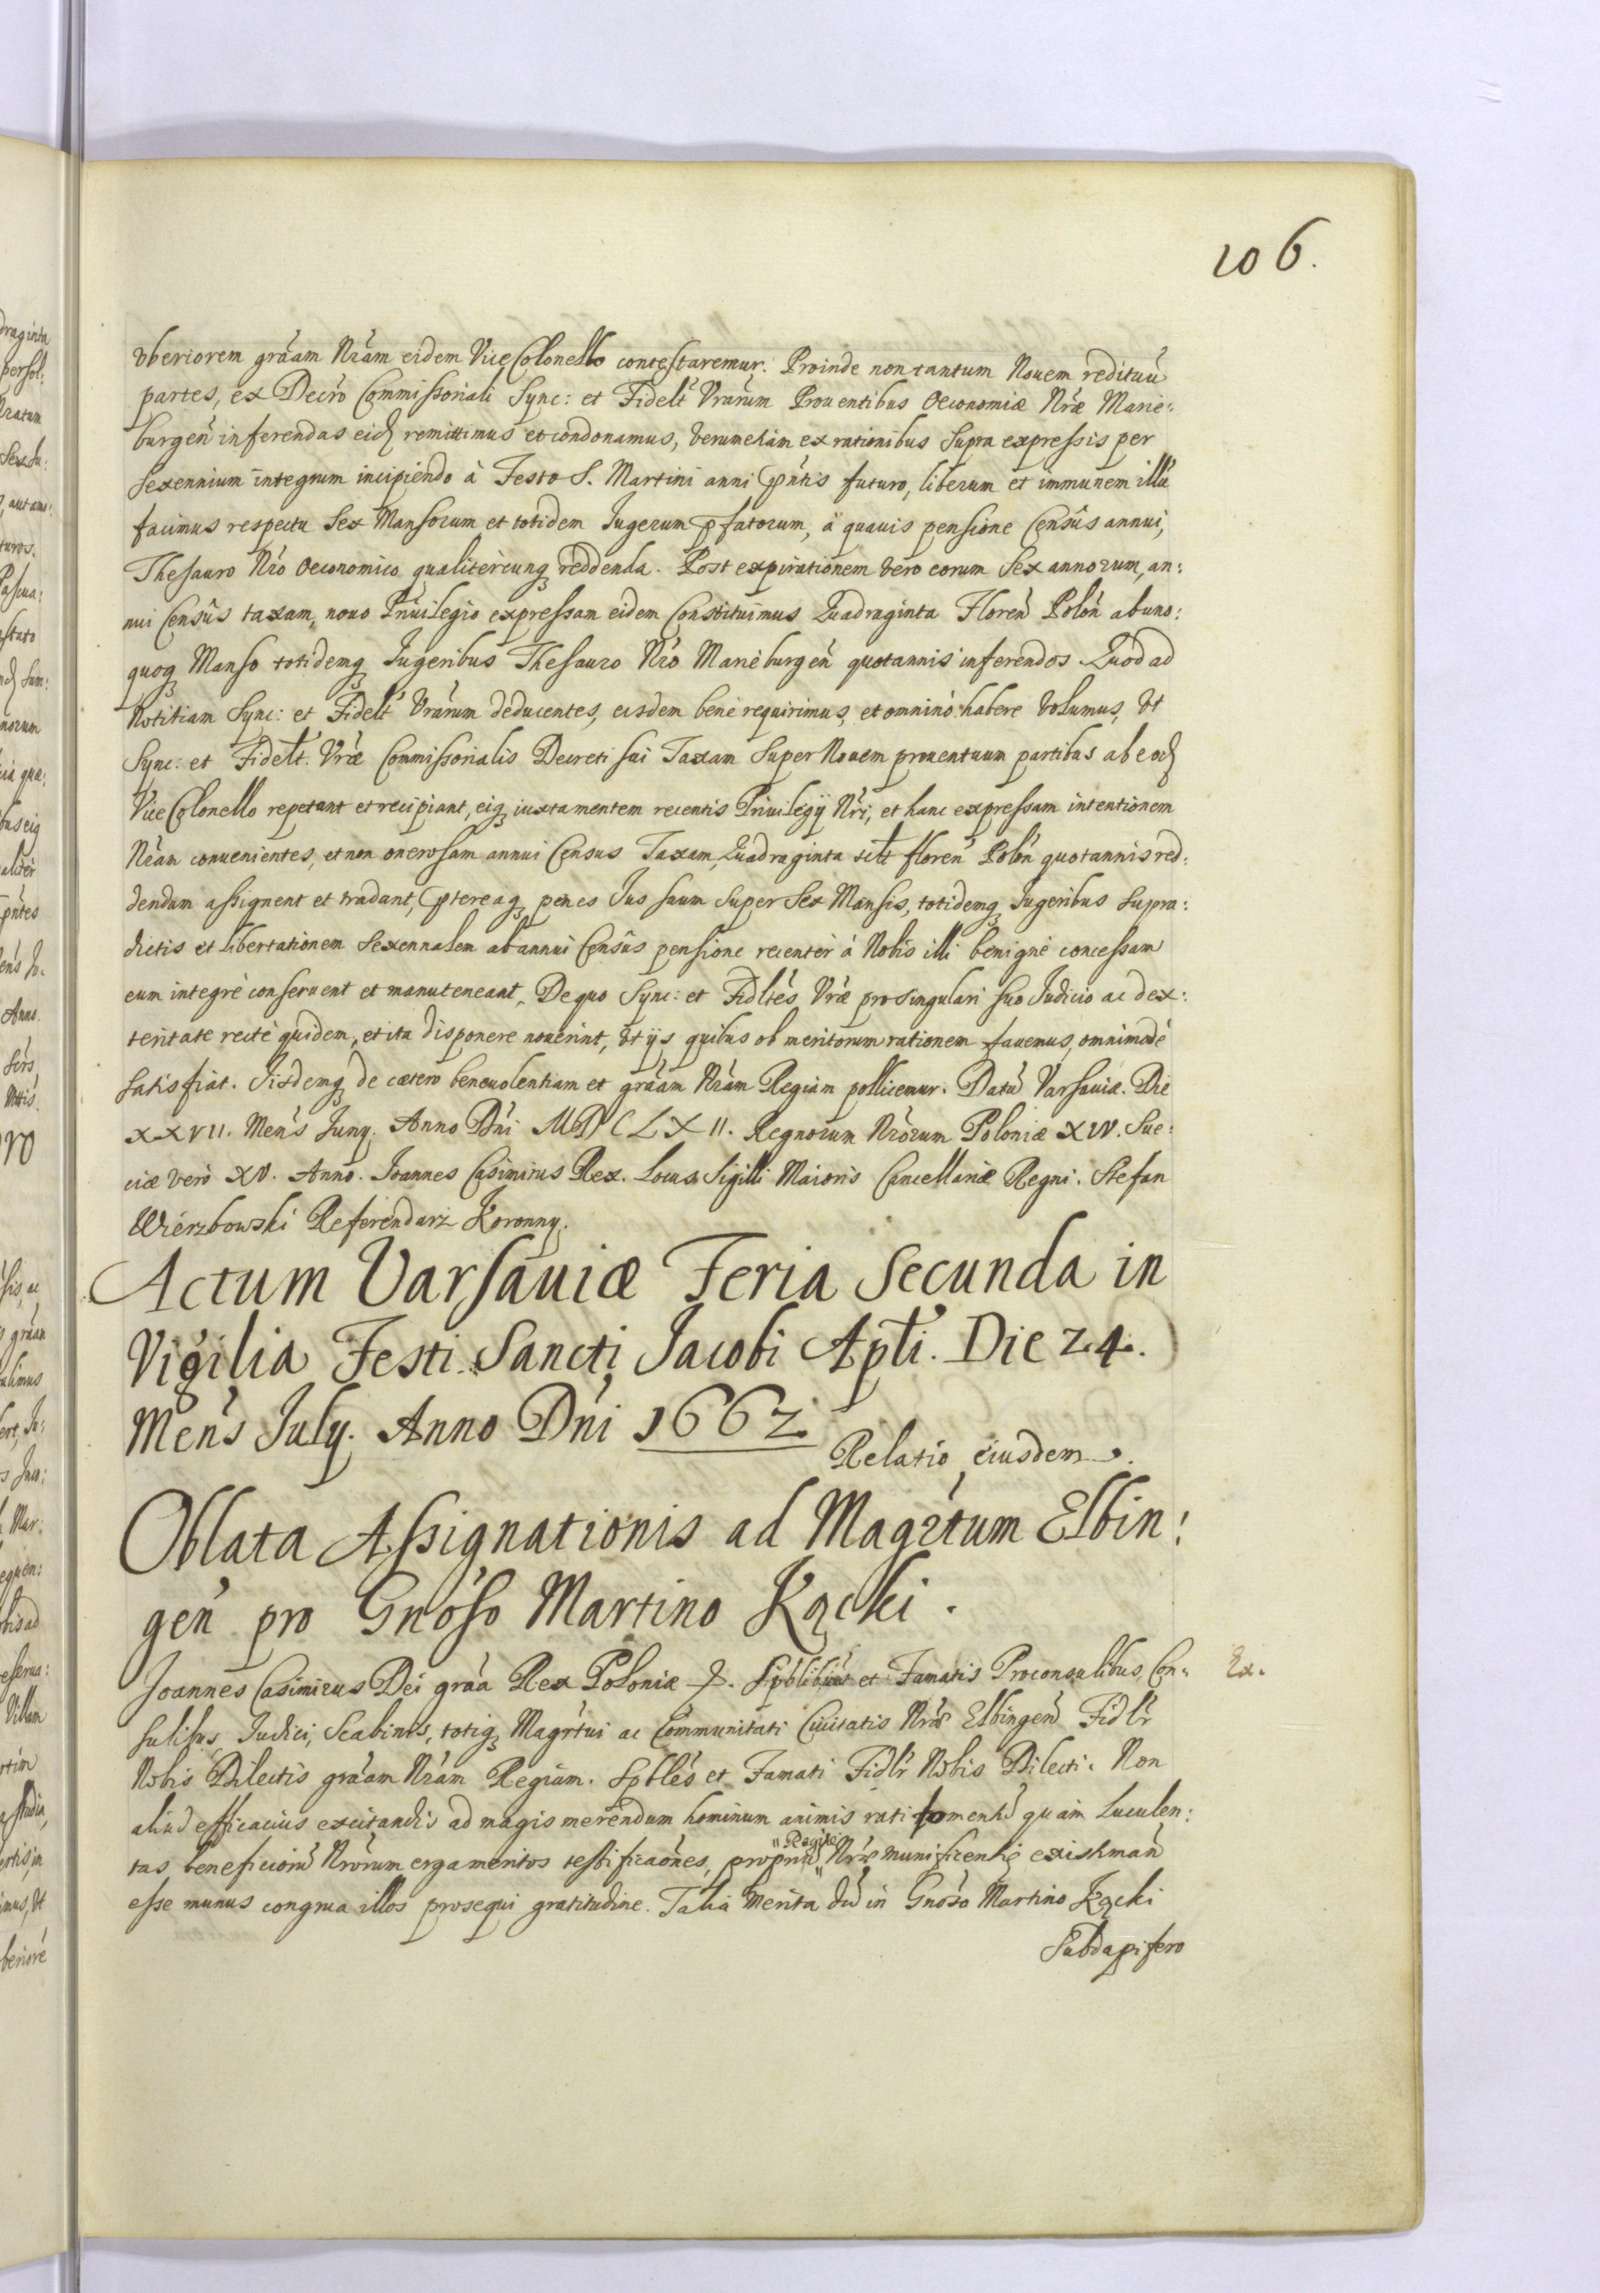 106.
vberiorem gráam Nrám eidem Vice Colonello contestaremur. Proinde non tantum Nouem redituũ
partes, ex Decró Commissoriali Sync: et Fidelt Vrárum Prouentibus Oeconomiæ Nræ Marie:
burgeñ inferendas eid remittimus et condonamus, verumetiám ex rationibus supra expressis per
sexennium integrum incipiendo à Festo S. Martini anni pntis futuro, liberum et immunem illũ
facimus respectu Sex Mansorum et totidem Iugerum pfatorum, à quauis pensione Censûs annui,
Thesauro Nró Oeconomico qualitercunq reddenda. Post expirationem vero eorum Sex annorum, an:
nui Censûs taxam, nouo Priuilegio expressam eidem Constituimus Quadraginta Floreñ Poloñ ab uno:
quoq Manso totidemq Iugeribus Thesauro Nró Marieburgeñ quotannis inferendos. Quod ad
Notitiam Sync: et Fidelt Vrárum deducentes, eisdem benè requirimus, et omninò habere volumus, vt
Sync: et Fidelt. Vræ Commissorialis Decreti sui Taxam super Nouem prouentuum partibus ab eod
Vice Colonello repetant et recipiant, eiq iuxta mentem recentis Priuilegÿ Nri, et hanc expressam intentionem
Nrám conuenientes, et non onerosam annui Census Taxam, Quadraginta sclt floreñ Poloñ quotannis red:
dendam assignent et tradant, ptereaq penes Ius suum super Sex Mansis, totidemq Iugeribus supra:
dictis et libertationem Sexennalem ab annui Censûs pensione recentèr à Nobis illi benignè concessam
eum integrè conseruent et manuteneant, De quo Sync: et Fidltés Vræ pro singulari suo Iudicio ac dex:
teritate rectè quidem, et ita disponere nouerint, vt ijs quibus ob meritorum rationem fauemus, omnimodè
satisfiat. Iisdemq de cætero beneuolentiam et gráam Nrám Regiam pollicemur. Datũ Varsauiæ. Die
XXVII. Mens Iuny. Anno Dni MDCLXII. Regnorum Nrórum Poloniæ XIV. Sue:
ciæ verò XV. Anno. Ioannes Casimirus Rex. Locus Sigilli Maioris Cancellariæ Regni. Stefan
Wierzbowski Referendarz Koronny.
Actum Varsauiæ Feria Secunda in
Vigilia Festi Sancti Iacobi Apti. Die 24.
Mens July. Anno Dni 1662.
Relatio eiusdem.
Oblata Assignationis ad Magrtum Elbin:
geñ pro Gnóso Martino Kącki.
Ioannes Casimirus Dei gráa Rex Poloniæ &. Spblibus et Famatis Proconsulibus, Con:
Ex.
sulibus, Iudici, Scabinis, totiq Magrtui ac Communitati Ciuitatis Nræ Elbingeñ Fidlr
Nobis Dilectis gráam Nrám Regiam. Spblés et Famati Fidlr Nobis Dilecti. Non
aliud efficacius excitandis ad magis merendum hominum animis rati fomentũ quam luculen:
tas beneficiorũ Nrórum erga meritos testificaónes, propriũ
Regiæ
Nræ munificentiæ existimañ
esse munus congrua illos prosequi gratitudine. Talia merita dũ in Gnóso Martino Kącki
Subdapifero